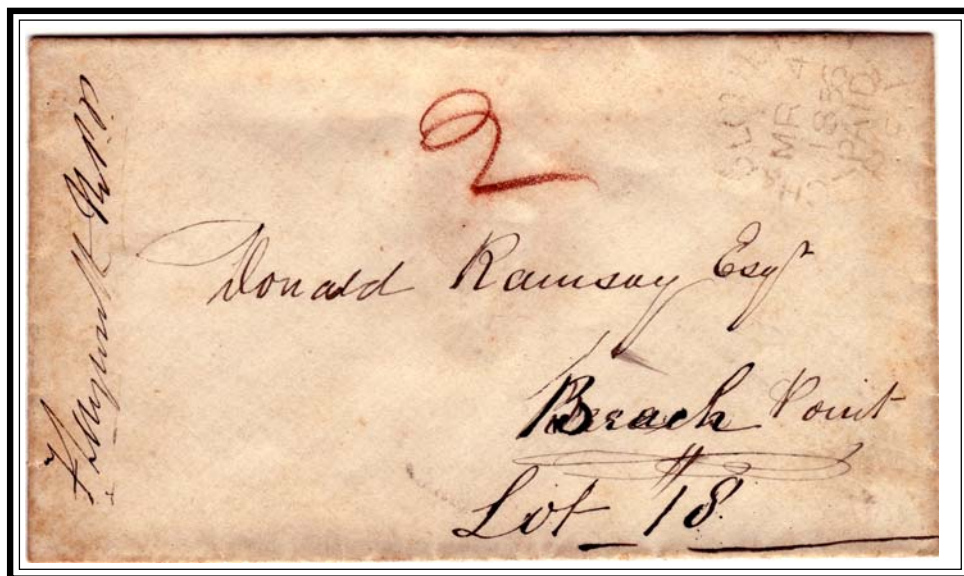 2
MR 4
1856
PAID
Donald Ramsay Esqr
Beach Point
Lot 18